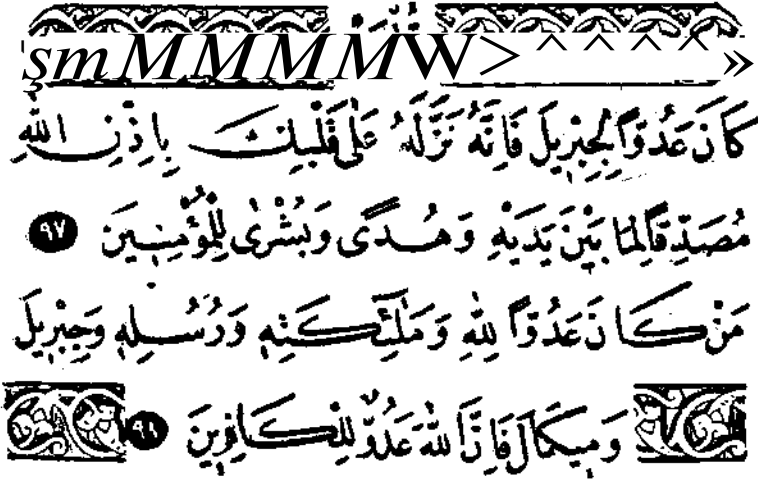 şmMMMMW>^^^^»
كَانَ عَدُوًّا لِجِبْرِيلَ فَإِنَّهُ نَزَّلَهُ عَلَى قَلْبِكَ بِإِذْنِ اللَّهِ
مُصَدِّقًا لِمَا بَيْنَ يَدَيْهِ وَهُدًى وَبُشْرَى لِلْمُؤْمِنِينَ ٩٧
مَنْ كَانَ عَدُوًّا لِلَّهِ وَمَلَٰئِكَتِهِ وَرُسُلِهِ وَجِبْرِيلَ
وَمِيكَالَ فَإِنَّ اللَّهَ عَدُوٌّ لِلْكَافِرِينَ ٩٨